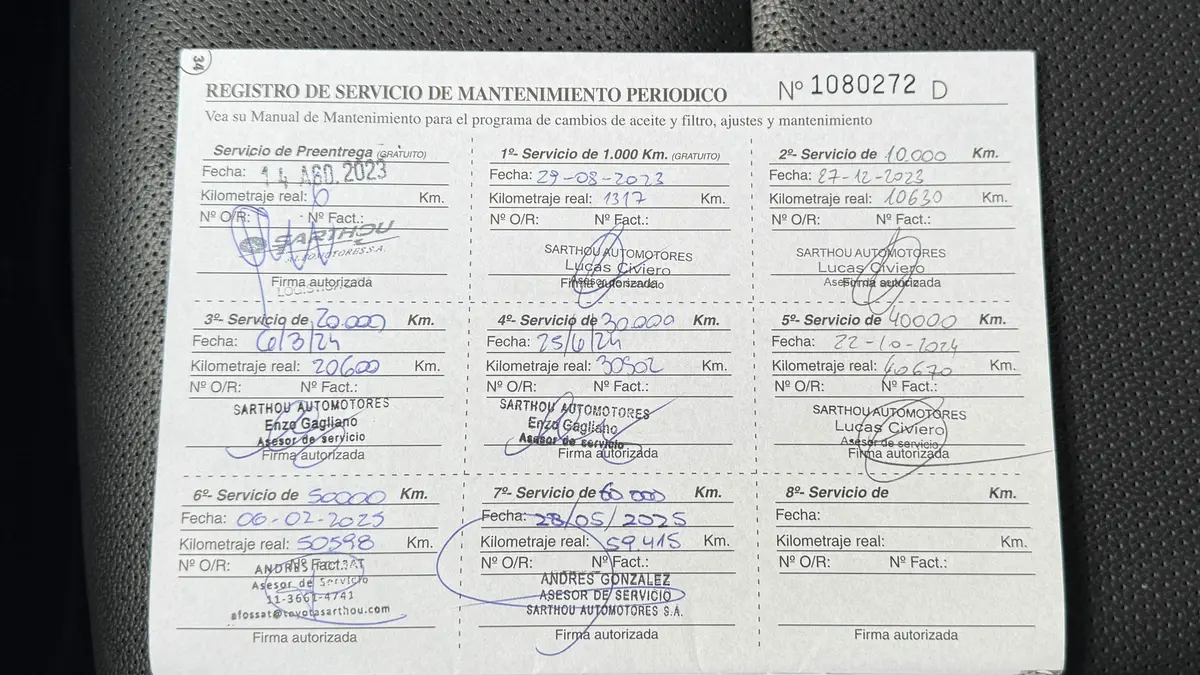 34
REGISTRO DE SERVICIO DE MANTENIMIENTO PERIODICO
Nº 1080272 D
Vea su Manual de Mantenimiento para el programa de cambios de aceite y filtro, ajustes y mantenimiento
Servicio de Preentrega (GRATUITO)
Fecha: 14 AGO. 2023
Kilometraje real: 0 Km.
Nº O/R: Nº Fact.:
SARTHOU
AUTOMOTORES S.A.
Firma autorizada
1º- Servicio de 1.000 Km. (GRATUITO)
Fecha: 29-08-2023
Kilometraje real: 1317 Km.
Nº O/R: Nº Fact.:
SARTHOU AUTOMOTORES
Lucas Civiero
Asesor de servicio
Firma autorizada
2º- Servicio de 10.000 Km.
Fecha: 27-12-2023
Kilometraje real: 10630 Km.
Nº O/R: Nº Fact.:
SARTHOU AUTOMOTORES
Lucas Civiero
Firma autorizada
3º- Servicio de 20.000 Km.
Fecha: 6/3/24
Kilometraje real: 20600 Km.
Nº O/R: Nº Fact.:
SARTHOU AUTOMOTORES
Enzo Gagliano
Asesor de servicio
Firma autorizada
4º- Servicio de 30.000 Km.
Fecha: 25/6/24
Kilometraje real: 30502 Km.
Nº O/R: Nº Fact.:
SARTHOU AUTOMOTORES
Enzo Gagliano
Asesor de servicio
Firma autorizada
5º- Servicio de 40000 Km.
Fecha: 22-10-2024
Kilometraje real: 40670 Km.
Nº O/R: Nº Fact.:
SARTHOU AUTOMOTORES
Lucas Civiero
Asesor de servicio
Firma autorizada
6º- Servicio de 50000 Km.
Fecha: 06-02-2025
Kilometraje real: 50598 Km.
Nº O/R: Nº Fact.:
Asesor de Servicio
11-3661-4741
afossat@toyotasarthou.com
Firma autorizada
7º- Servicio de 60 000 Km.
Fecha: 28/05/2025
Kilometraje real: 59.415 Km.
Nº O/R: Nº Fact.:
ANDRES GONZALEZ
ASESOR DE SERVICIO
SARTHOU AUTOMOTORES S.A.
Firma autorizada
8º- Servicio de Km.
Fecha:
Kilometraje real: Km.
Nº O/R: Nº Fact.:
Firma autorizada